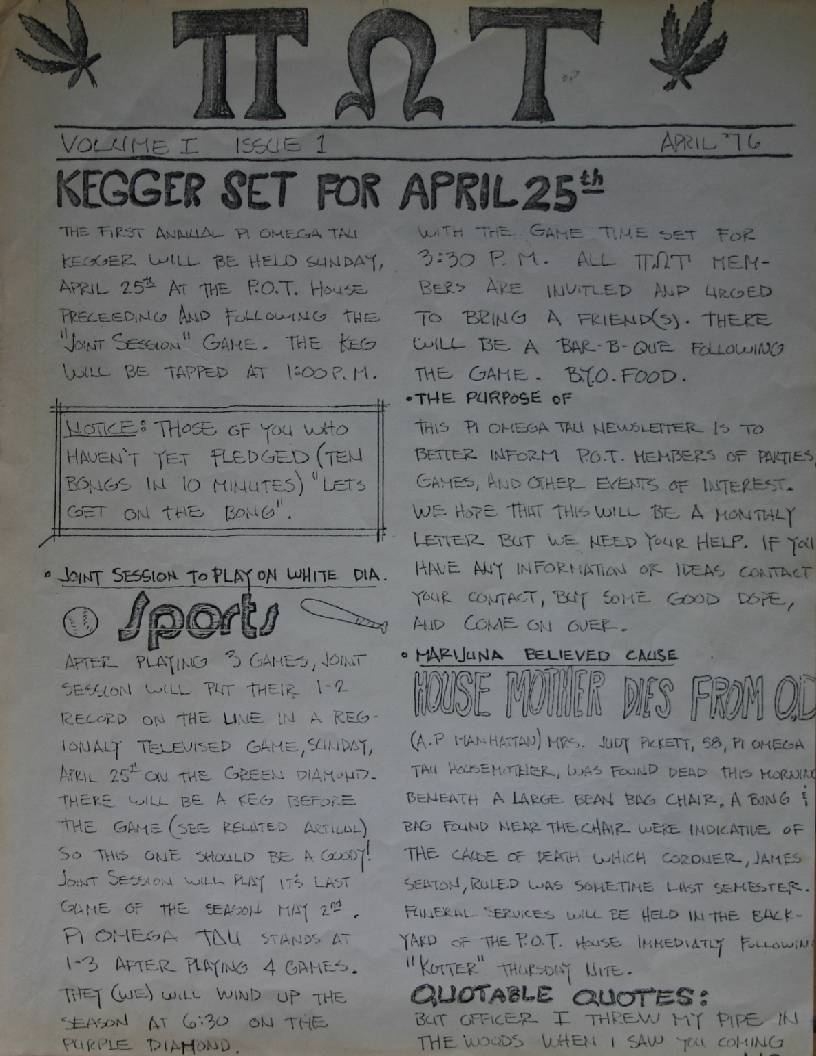 ΠΩΤ
VOLUME I ISSUE 1 APRIL '76
KEGGER SET FOR APRIL 25th
THE FIRST ANNUAL PI OMEGA TAU
KEGGER WILL BE HELD SUNDAY,
APRIL 25th AT THE P.O.T. HOUSE
PRECEEDING AND FOLLOWING THE
"JOINT SESSION" GAME. THE KEG
WILL BE TAPPED AT 1:00 P.M.
NOTICE: THOSE OF YOU WHO
HAVEN'T YET PLEDGED (TEN
BONGS IN 10 MINUTES) "LETS
GET ON THE BONG".
• JOINT SESSION TO PLAY ON WHITE DIA.
Sports
AFTER PLAYING 3 GAMES, JOINT
SESSION WILL PUT THEIR 1-2
RECORD ON THE LINE IN A REG-
IONALY TELEVISED GAME, SUNDAY,
APRIL 25th ON THE GREEN DIAMOND.
THERE WILL BE A KEG BEFORE
THE GAME (SEE RELATED ARTICAL)
SO THIS ONE SHOULD BE A GOODY!
JOINT SESSION WILL PLAY IT'S LAST
GAME OF THE SEASON MAY 2nd.
PI OMEGA TAU STANDS AT
1-3 AFTER PLAYING 4 GAMES.
THEY (WE) WILL WIND UP THE
SEASON AT 6:30 ON THE
PURPLE DIAMOND.
WITH THE GAME TIME SET FOR
3:30 P.M. ALL ΠΩΤ MEM-
BERS ARE INVITLED AND URGED
TO BRING A FRIEND(S). THERE
WILL BE A BAR-B-QUE FOLLOWING
THE GAME. B.Y.O. FOOD.
• THE PURPOSE OF
THIS PI OMEGA TAU NEWSLETTER IS TO
BETTER INFORM P.O.T. MEMBERS OF PARTIES,
GAMES, AND OTHER EVENTS OF INTEREST.
WE HOPE THAT THIS WILL BE A MONTHLY
LETTER BUT WE NEED YOUR HELP. IF YOU
HAVE ANY INFORMATION OR IDEAS CONTACT
YOUR CONTACT, BUY SOME GOOD DOPE,
AND COME ON OVER.
• MARIJUNA BELIEVED CAUSE
HOUSE MOTHER DIES FROM O.D
(A.P MANHATTAN) MRS. JUDY PICKETT, 58, PI OMEGA
TAU HOUSEMOTHER, WAS FOUND DEAD THIS MORNING
BENEATH A LARGE BEAN BAG CHAIR, A BONG &
BAG FOUND NEAR THE CHAIR WERE INDICATIVE OF
THE CAUSE OF DEATH WHICH CORONER, JAMES
SEATON, RULED WAS SOMETIME LAST SEMESTER.
FUNERAL SERVICES WILL BE HELD IN THE BACK-
YARD OF THE P.O.T. HOUSE IMMEDIATLY FOLLOWING
"KOTTER" THURSDAY NITE.
QUOTABLE QUOTES:
BUT OFFICER I THREW MY PIPE IN
THE WOODS WHEN I SAW YOU COMING